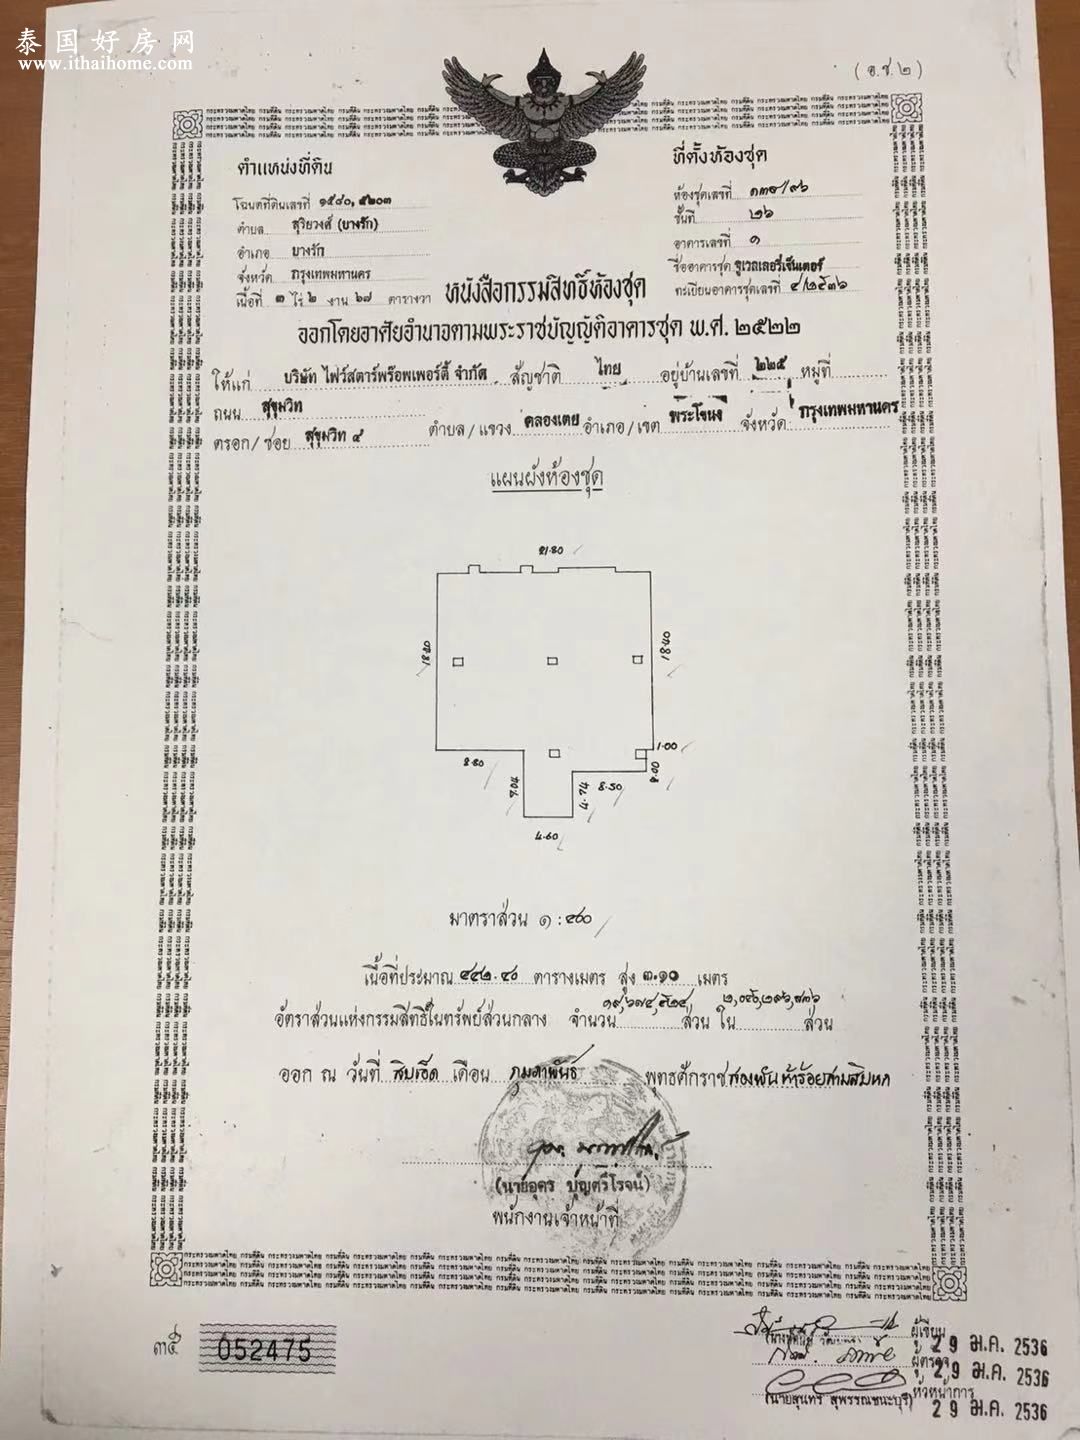 泰国好房网
www.ithaihome.com
(อ.ช.๒)
ตำแหน่งที่ดิน
โฉนดที่ดินเลขที่ ๑๕๔๐, ๕๒๐๓
ตำบล สุริยวงศ์ (บางรัก)
อำเภอ บางรัก
จังหวัด กรุงเทพมหานคร
เนื้อที่ ๓ ไร่ ๒ งาน ๖๗ ตารางวา
ที่ตั้งห้องชุด
ห้องชุดเลขที่
ชั้นที่ ๒๖
อาคารเลขที่ ๑
ชื่ออาคารชุด จูเวลเลอรี่เซ็นเตอร์
ทะเบียนอาคารชุดเลขที่ ๔/๒๕๓๖
หนังสือกรรมสิทธิ์ห้องชุด
ออกโดยอาศัยอำนาจตามพระราชบัญญัติอาคารชุด พ.ศ. ๒๕๒๒
ให้แก่ บริษัท ไฟว์สตาร์พร๊อพเพอร์ตี้ จำกัด สัญชาติ ไทย อยู่บ้านเลขที่ ๒๒๕ หมู่ที่
ถนน สุขุมวิท
ตรอก/ซอย สุขุมวิท ๔ ตำบล/แขวง คลองเตย อำเภอ/เขต พระโขนง จังหวัด กรุงเทพมหานคร
แผนผังห้องชุด
21.80
18.40
18.40
1.00
8.80
7.04
4.74
8.50
4.60
มาตราส่วน ๑ : ๔๐๐
เนื้อที่ประมาณ ๔๔๒.๔๐ ตารางเมตร สูง ๓.๑๐ เมตร
อัตราส่วนแห่งกรรมสิทธิ์ในทรัพย์ส่วนกลาง จำนวน ส่วน ใน ส่วน
ออก ณ วันที่ สิบเอ็ด เดือน กุมภาพันธ์ พุทธศักราช สองพันห้าร้อยสามสิบหก
(นายอุดร บุญตรีโรจน์)
พนักงานเจ้าหน้าที่
052475
ผู้เขียน
29 ม.ค. 2536
ผู้ตรวจ
29 ม.ค. 2536
หัวหน้าการ
(นายสุนทร สุพรรณชนะบุรี)
29 ม.ค. 2536